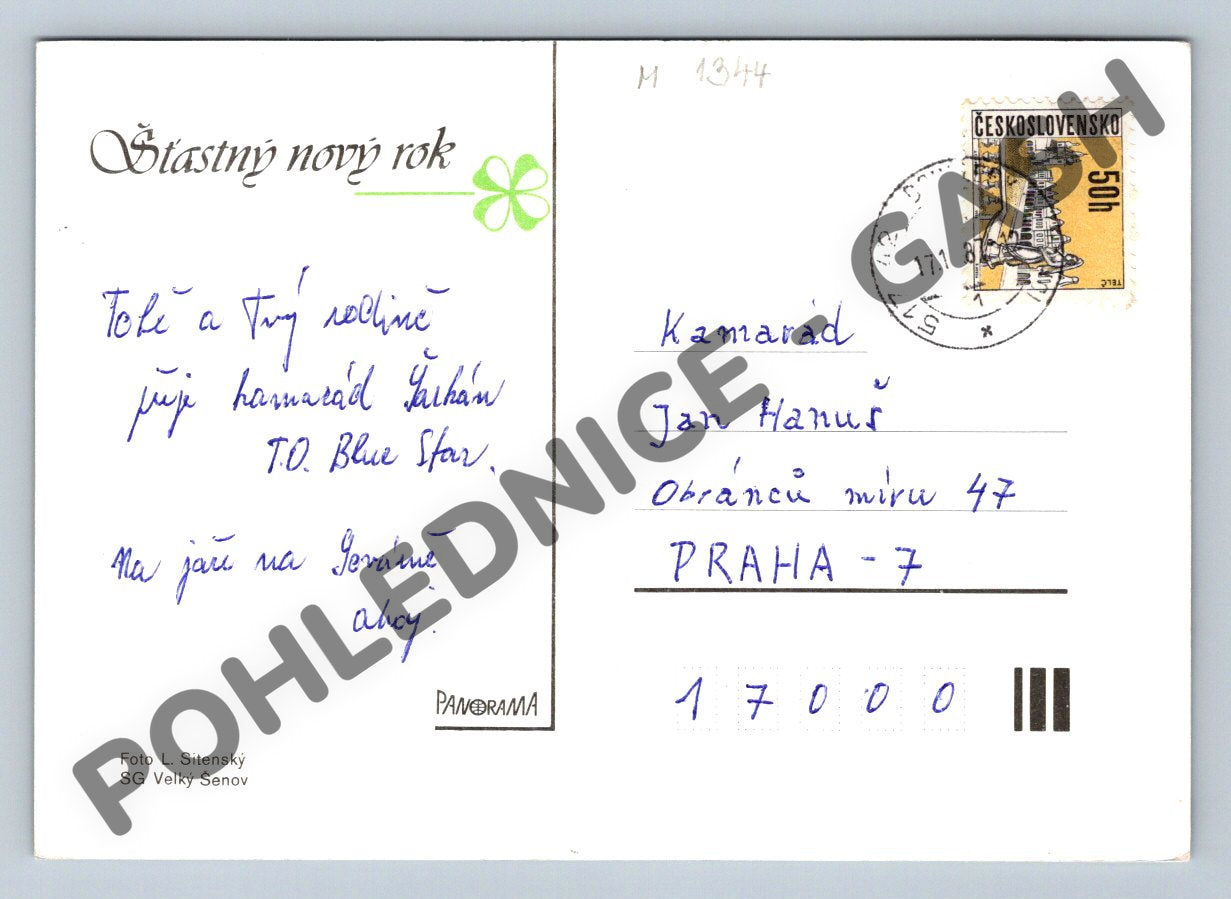 M 1344
Šťastný nový rok
ČESKOSLOVENSKO
50h
TELČ
17.1
Tobě a Tvý rodině
přeje kamarád
T.O. Blue Star.
Na jaře na
ahoj!
PANORAMA
Foto L. Sitenský
SG Velký Šenov
Kamarád
Jan Hanuš
Obránců míru 47
PRAHA - 7
1 7 0 0 0
POHLEDNICE - GASH